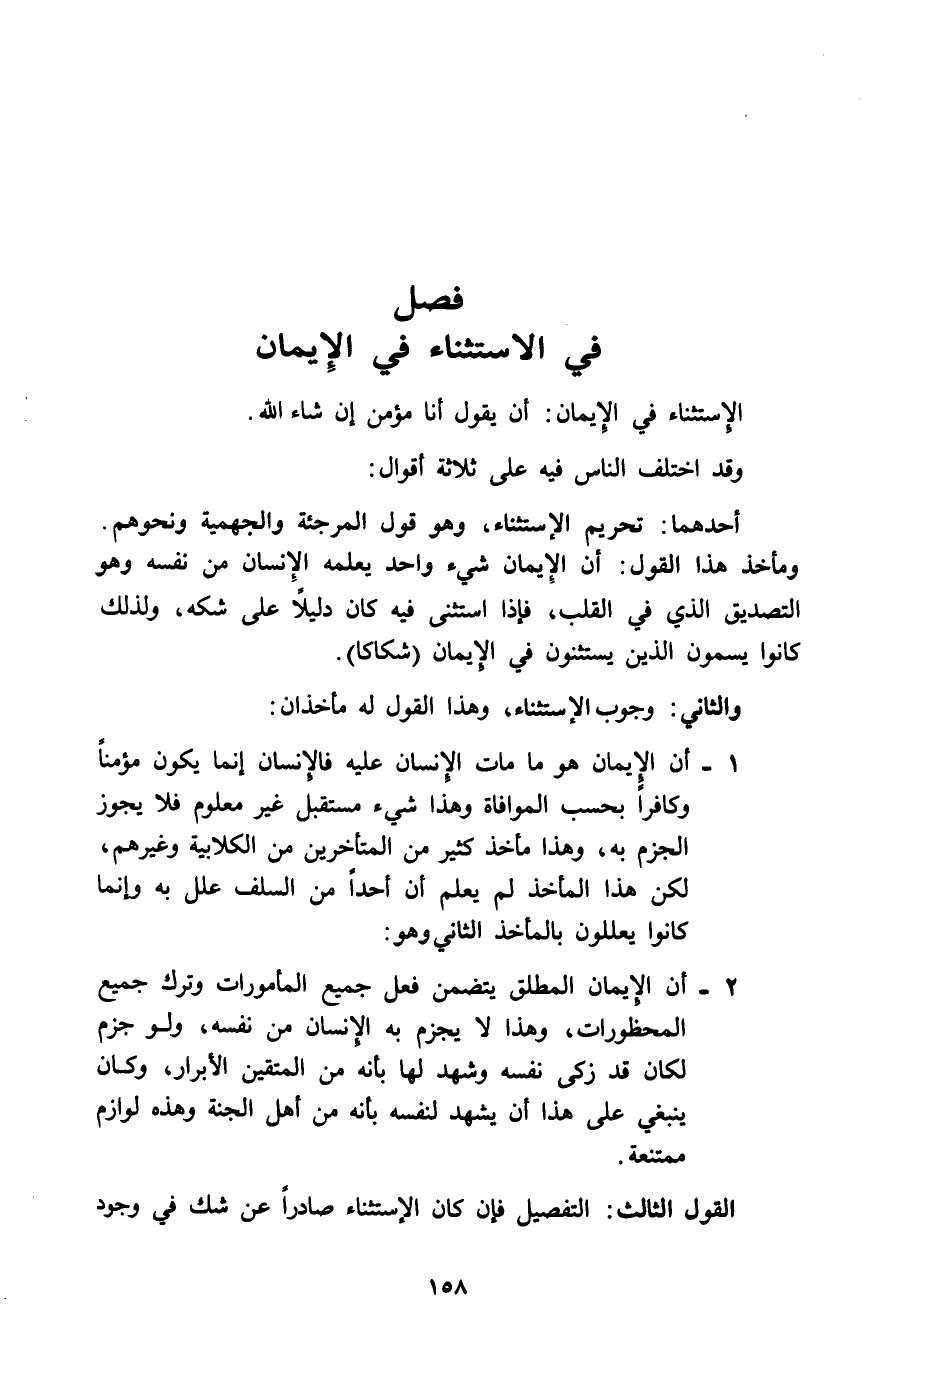 فصل
في الاستثناء في الإيمان
الإستثناء في الإيمان: أن يقول أنا مؤمن إن شاء الله.
وقد اختلف الناس فيه على ثلاثة أقوال:
أحدهما: تحريم الإستثناء، وهو قول المرجئة والجهمية ونحوهم.
ومأخذ هذا القول: أن الإيمان شيء واحد يعلمه الإنسان من نفسه وهو
التصديق الذي في القلب، فإذا استثنى فيه كان دليلاً على شكه، ولذلك
كانوا يسمون الذين يستثنون في الإيمان (شكاكا).
والثاني: وجوب الإستثناء، وهذا القول له مأخذان:
١ - أن الإيمان هو ما مات الإنسان عليه فالإنسان إنما يكون مؤمناً
وكافراً بحسب الموافاة وهذا شيء مستقبل غير معلوم فلا يجوز
الجزم به، وهذا مأخذ كثير من المتأخرين من الكلابية وغيرهم،
لكن هذا المأخذ لم يعلم أن أحداً من السلف علل به وإنما
كانوا يعللون بالمأخذ الثاني وهو:
٢ - أن الإيمان المطلق يتضمن فعل جميع المأمورات وترك جميع
المحظورات، وهذا لا يجزم به الإنسان من نفسه، ولو جزم
لكان قد زكى نفسه وشهد لها بأنه من المتقين الأبرار، وكان
ينبغي على هذا أن يشهد لنفسه بأنه من أهل الجنة وهذه لوازم
ممتنعة.
القول الثالث: التفصيل فإن كان الإستثناء صادراً عن شك في وجود
١٥٨